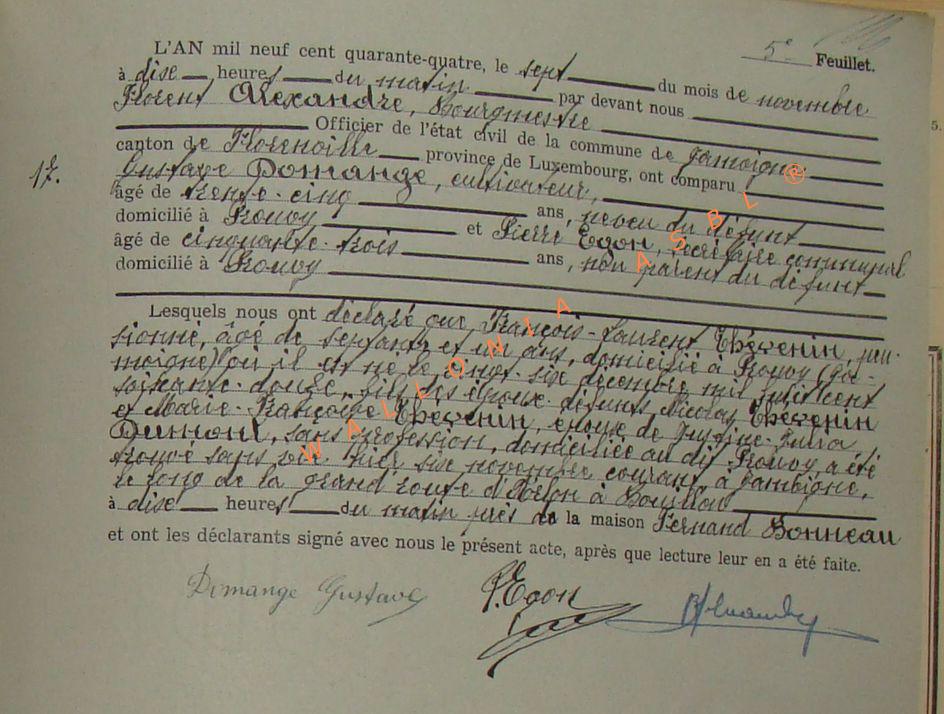 5e Feuillet.
L'AN mil neuf cent quarante-quatre, le sept du mois de novembre
à dise heures du matin par devant nous
Florent Alexandre, Bourgmestre
Officier de l'état civil de la commune de Jamoigne
canton de Florenville province de Luxembourg, ont comparu
17.
Gustave Domange, cultivateur,
âgé de trente-cinq ans, neveu du défunt
domicilié à Prouvy et Pierre Egon, secrétaire communal
âgé de cinquante-trois ans, non parent du défunt
domicilié à Prouvy
Lesquels nous ont déclaré que François-Laurent Thévenin, pen-
sionné, âgé de septante et un ans, domicilié à Prouvy (Ja-
moigne) où il est né le vingt-six décembre mil huit cent
soixante-douze, fils des époux défunts Nicolas Thévenin
et Marie-Françoise Thévenin, époux de
Dumont, sans profession, domiciliée au dit Prouvy, a été
trouvé sans vie hier six novembre courant à Jamoigne,
le long de la grand route d'Arlon à Bouillon
à dise heures du matin près de la maison Fernand Bonneau
et ont les déclarants signé avec nous le présent acte, après que lecture leur en a été faite.
Domange Gustave P. Egon
WALLONIA ASBL ®